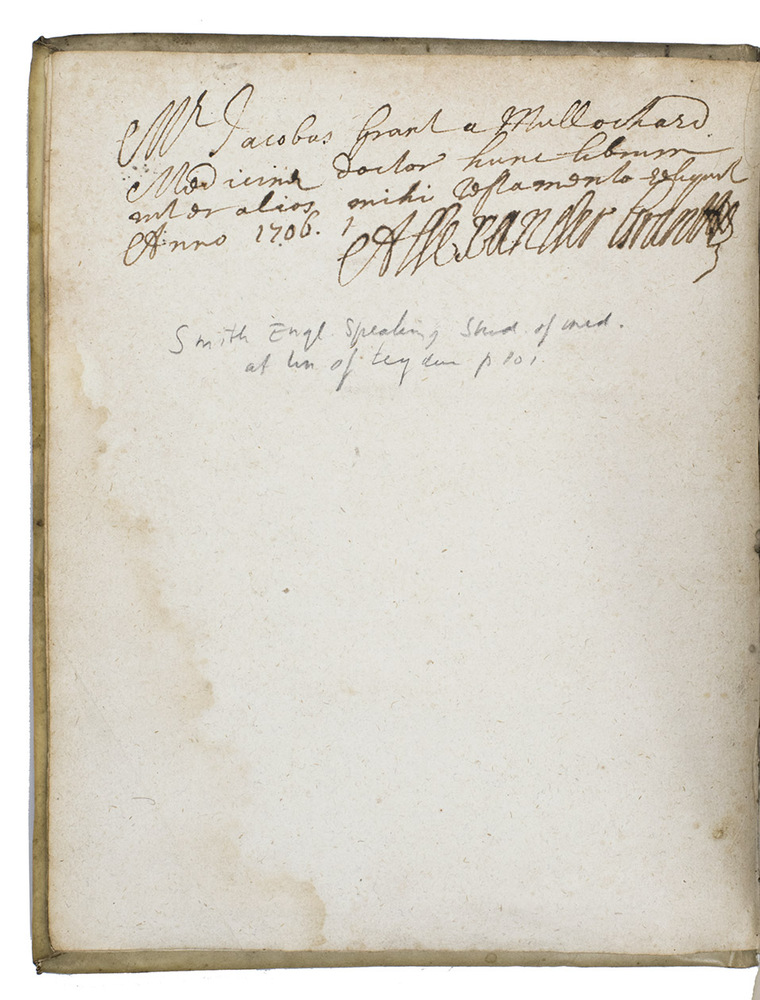 Mr Jacobus Grant a Mullochard
Medicinæ doctor hunc librum
inter alios mihi testamento reliquit
Anno 1706.
Allexander Grant
Smith Engl. Speaking Stud. of med.
at Un. of Leyden p 101.